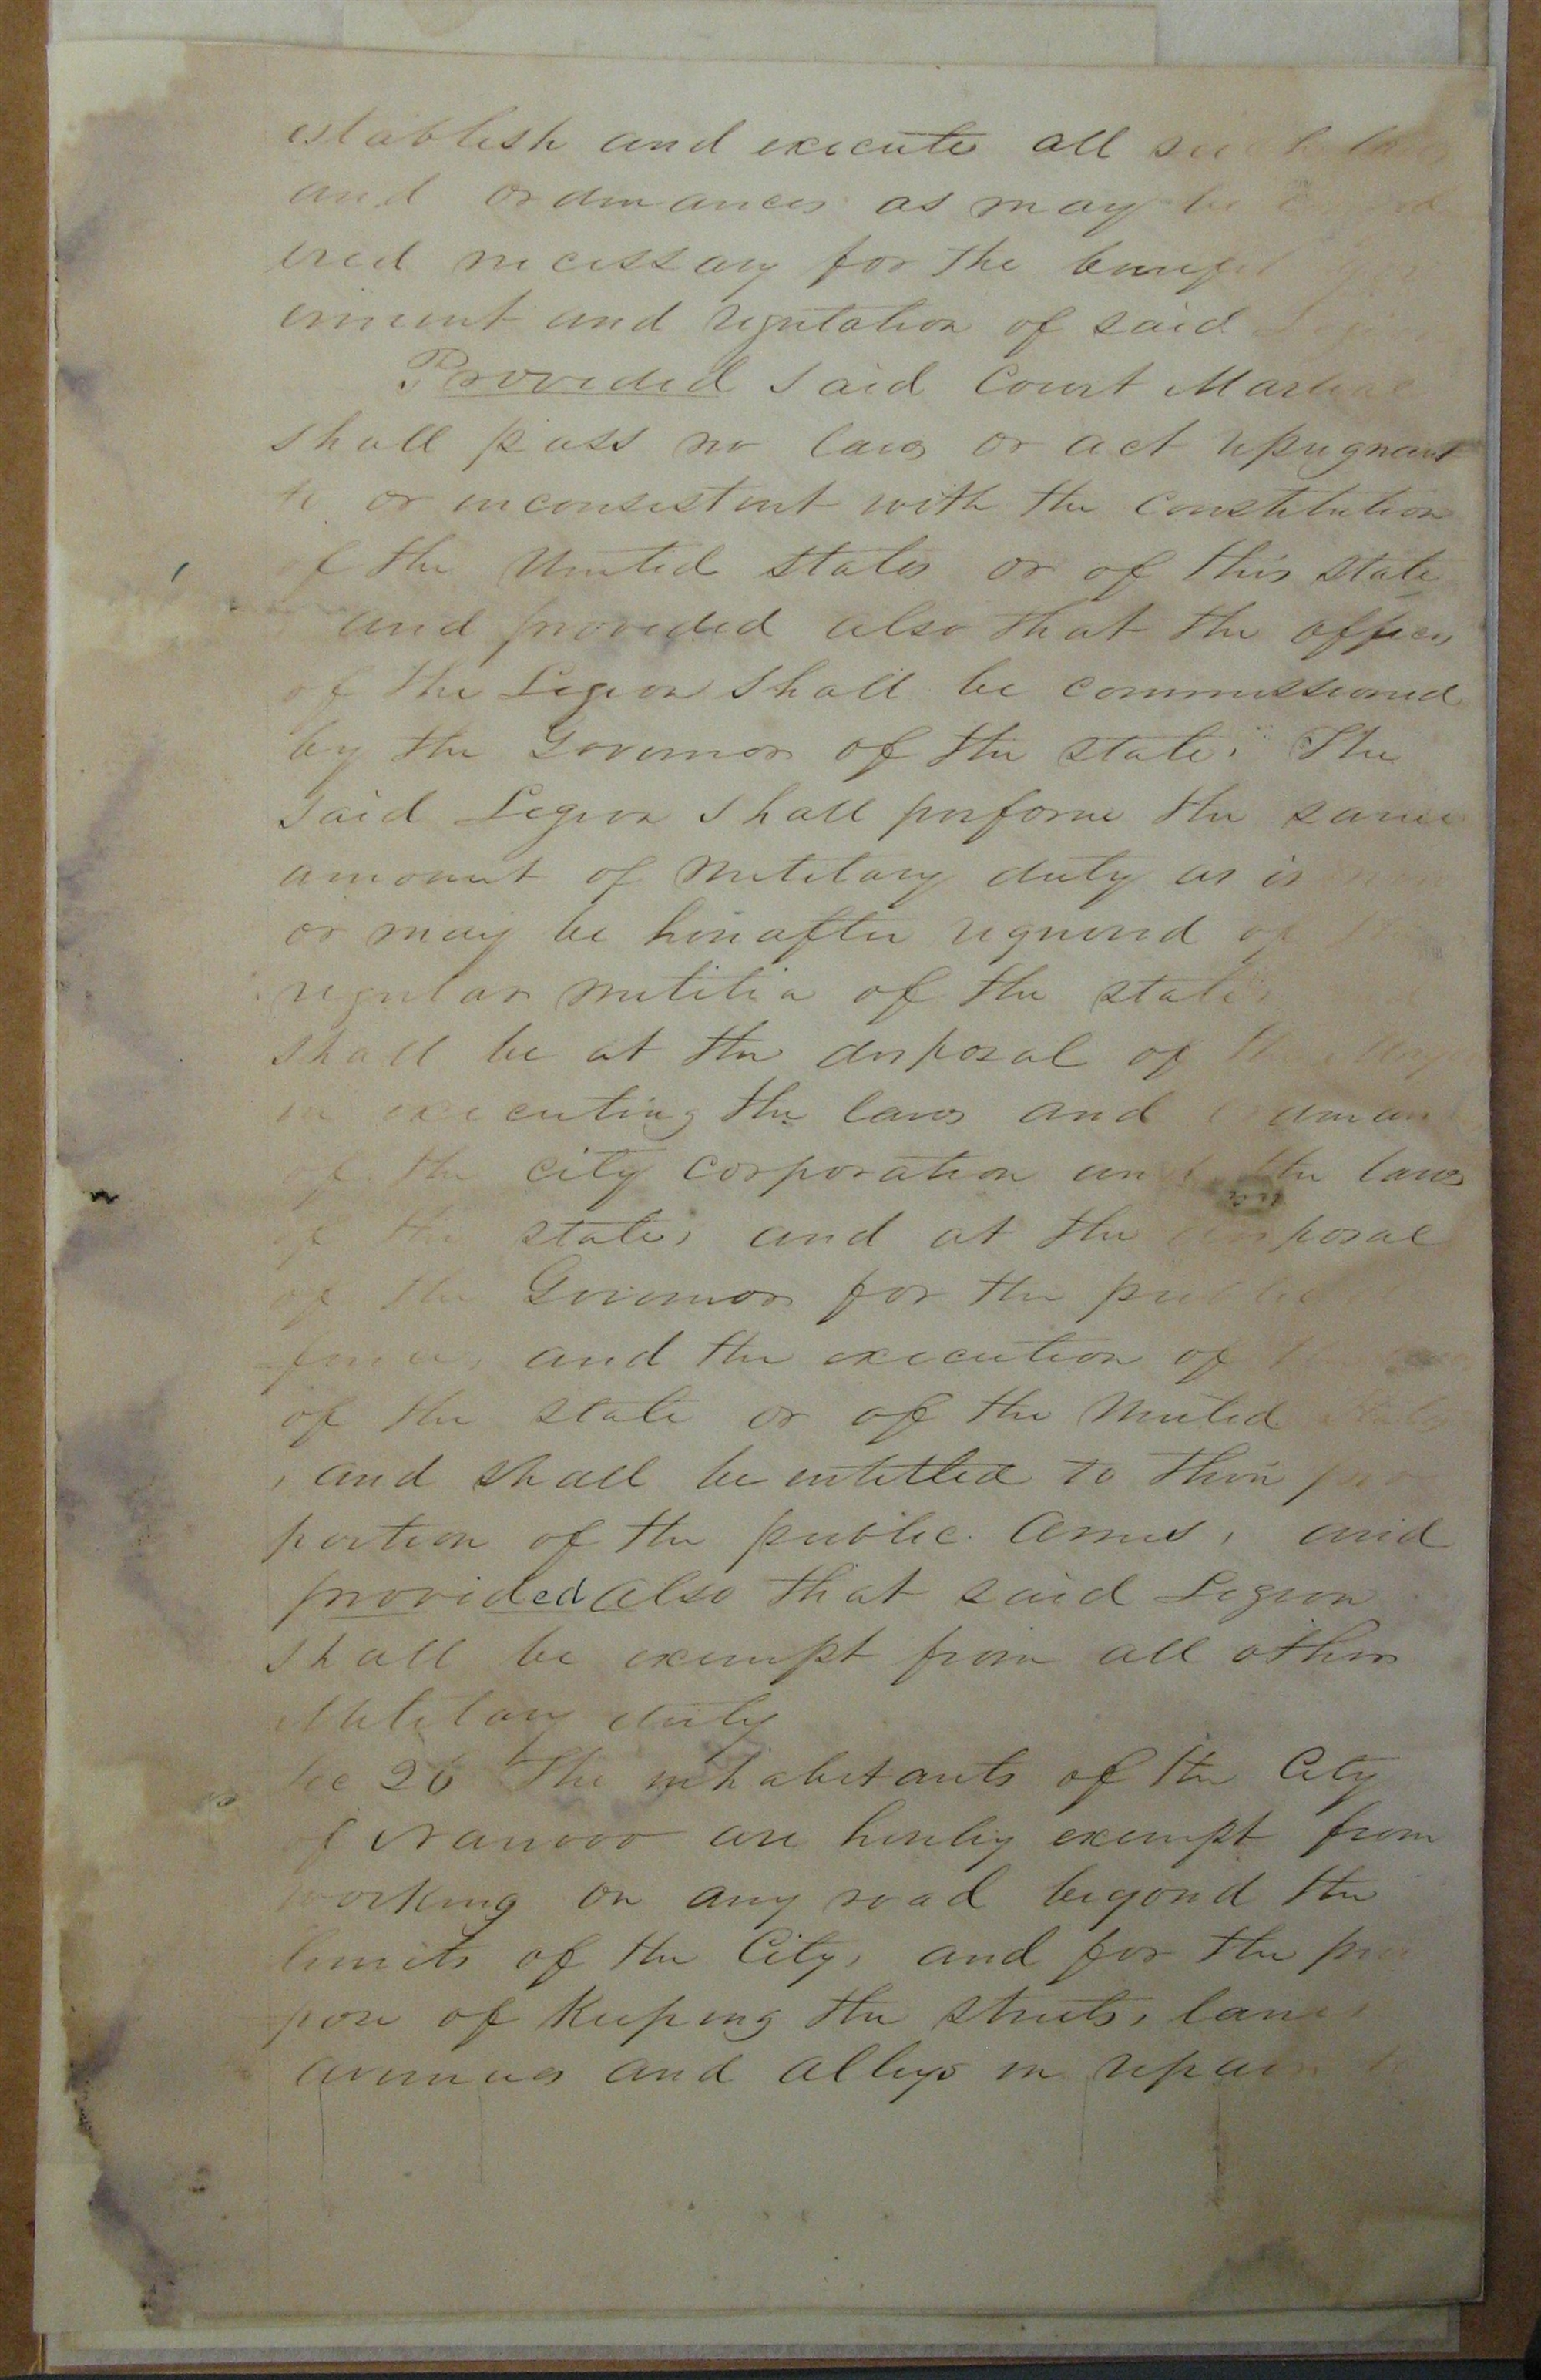 establish and execute all such laws
and ordinances as may be
ered necessary for the benefit
ernment and regulation of said Legion
Provided said Court Martial
shall pass no law or act repugnant
to or inconsistent with the Constitution
of the United States or of this State
and provided also that the officers
of the Legion shall be commissioned
by the Governor of the State. The
said Legion shall perform the same
amount of military duty as is now
or may be hereafter required of the
regular militia of the state,
shall be at the disposal of the May
in executing the laws and ordinan
of the city corporation and the laws
of the state, and at the disposal
of the Governor for the public
fence, and the execution of the laws
of the state or of the United States
, and shall be entitled to their pro
portion of the public arms, and
provided also that said Legion
shall be exempt from all other
Military duty
Sec 26 The inhabitants of the City
of Nauvoo are hereby exempt from
working on any road beyond the
limits of the City, and for the pur
pose of keeping the streets, lanes
avenues and alleys in repair to